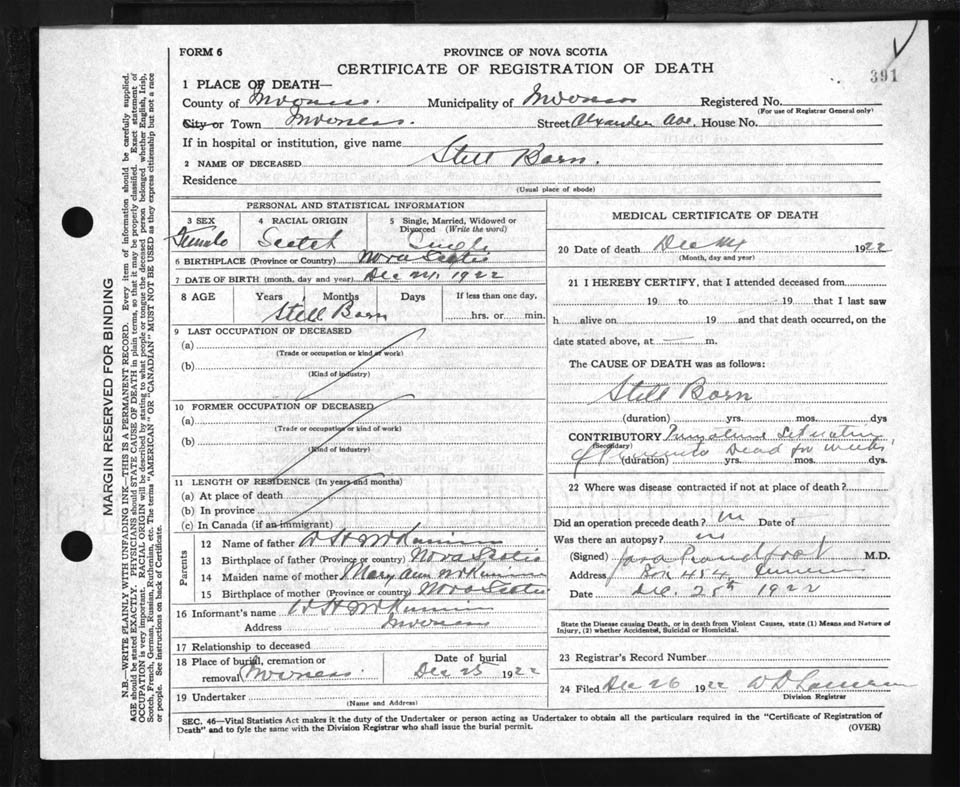 FORM 6
PROVINCE OF NOVA SCOTIA
CERTIFICATE OF REGISTRATION OF DEATH
391
1 PLACE OF DEATH—
County of Inverness. Municipality of Inverness Registered No.
(For use of Registrar General only)
City or Town Inverness. Street Alexander Ave. House No.
If in hospital or institution, give name
2 NAME OF DECEASED Still Born.
Residence
(Usual place of abode)
PERSONAL AND STATISTICAL INFORMATION
3 SEX 4 RACIAL ORIGIN 5 Single, Married, Widowed or Divorced (Write the word)
Female Scotch Single
6 BIRTHPLACE (Province or Country) Nova Scotia
7 DATE OF BIRTH (month, day and year) Dec 24, 1922
8 AGE Years Months Days If less than one day,
Still Born hrs. or min.
9 LAST OCCUPATION OF DECEASED
(a)
(Trade or occupation or kind of work)
(b)
(Kind of industry)
10 FORMER OCCUPATION OF DECEASED
(a)
(Trade or occupation or kind of work)
(b)
(Kind of industry)
11 LENGTH OF RESIDENCE (In years and months)
(a) At place of death
(b) In province
(c) In Canada (if an immigrant)
Parents
12 Name of father W H McKinnon
13 Birthplace of father (Province or country) Nova Scotia
14 Maiden name of mother Mary Ann McKinnon
15 Birthplace of mother (Province or country) Nova Scotia
16 Informant's name W H McKinnon
Address Inverness
17 Relationship to deceased
18 Place of burial, cremation or removal Inverness Date of burial Dec 25 1922
19 Undertaker
(Name and Address)
MEDICAL CERTIFICATE OF DEATH
20 Date of death Dec 24 1922
(Month, day and year)
21 I HEREBY CERTIFY, that I attended deceased from
19 to 19 that I last saw
h alive on 19 and that death occurred, on the
date stated above, at m.
The CAUSE OF DEATH was as follows:
Still Born
(duration) yrs. mos. dys
CONTRIBUTORY
(Secondary)
Dead for weeks
(duration) yrs. mos. dys.
22 Where was disease contracted if not at place of death?
Did an operation precede death? no Date of
Was there an autopsy? no
(Signed) Proudfoot M.D.
Address Box 454 Inverness
Date Dec. 25th 1922
State the Disease causing Death, or in death from Violent Causes, state (1) Means and Nature of
Injury, (2) whether Accidental, Suicidal or Homicidal.
23 Registrar's Record Number
24 Filed Dec 26 1922
Division Registrar
SEC. 46—Vital Statistics Act makes it the duty of the Undertaker or person acting as Undertaker to obtain all the particulars required in the "Certificate of Registration of
Death" and to fyle the same with the Division Registrar who shall issue the burial permit.
(OVER)
MARGIN RESERVED FOR BINDING
N.B.—WRITE PLAINLY WITH UNFADING INK—THIS IS A PERMANENT RECORD. Every item of information should be carefully supplied.
AGE should be stated EXACTLY. PHYSICIANS should STATE CAUSE OF DEATH in plain terms, so that it may be properly classified. Exact statement of
OCCUPATION is very important. RACIAL ORIGIN will be described by stating to what people or tongue the deceased person belonged whether English, Irish,
Scotch, French, German, Russian, Ruthenian, etc. The terms "AMERICAN" OR "CANADIAN" MUST NOT BE USED as they express citizenship but not a race
or people. See instructions on back of Certificate.